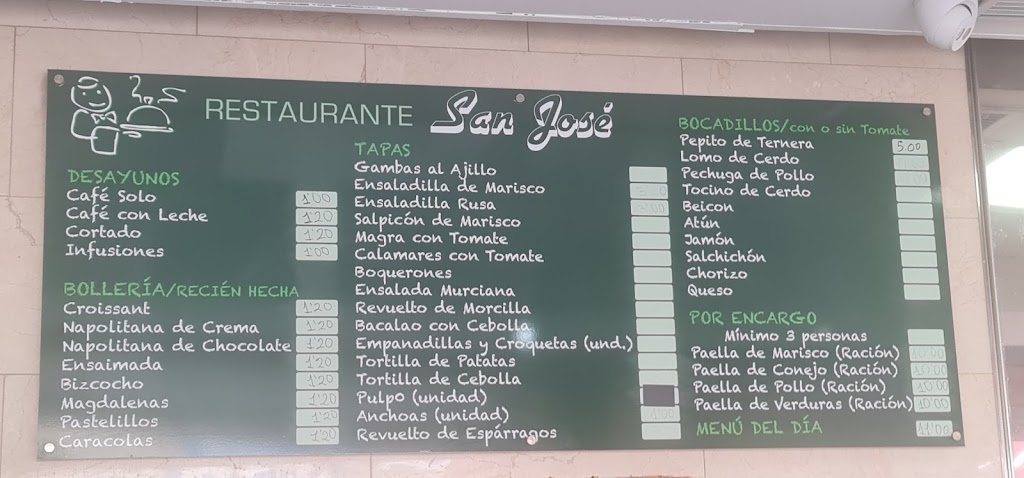 RESTAURANTE San José
DESAYUNOS
Café Solo 1'00
Café con Leche 1'20
Cortado 1'20
Infusiones 1'00
BOLLERÍA/RECIÉN HECHA
Croissant 1'20
Napolitana de Crema 1'20
Napolitana de Chocolate 1'20
Ensaimada 1'20
Bizcocho 1'20
Magdalenas 1'20
Pastelillos 1'20
Caracolas 1'20
TAPAS
Gambas al Ajillo
Ensaladilla de Marisco
Ensaladilla Rusa
Salpicón de Marisco
Magra con Tomate
Calamares con Tomate
Boquerones
Ensalada Murciana
Revuelto de Morcilla
Bacalao con Cebolla
Empanadillas y Croquetas (und.)
Tortilla de Patatas
Tortilla de Cebolla
Pulpo (unidad)
Anchoas (unidad) 1'00
Revuelto de Espárragos
BOCADILLOS/con o sin Tomate
Pepito de Ternera 5.00
Lomo de Cerdo
Pechuga de Pollo
Tocino de Cerdo
Beicon
Atún
Jamón
Salchichón
Chorizo
Queso
POR ENCARGO
Mínimo 3 personas
Paella de Marisco (Ración) 10'00
Paella de Conejo (Ración) 10'00
Paella de Pollo (Ración) 10'00
Paella de Verduras (Ración) 10'00
MENÚ DEL DÍA 11'00